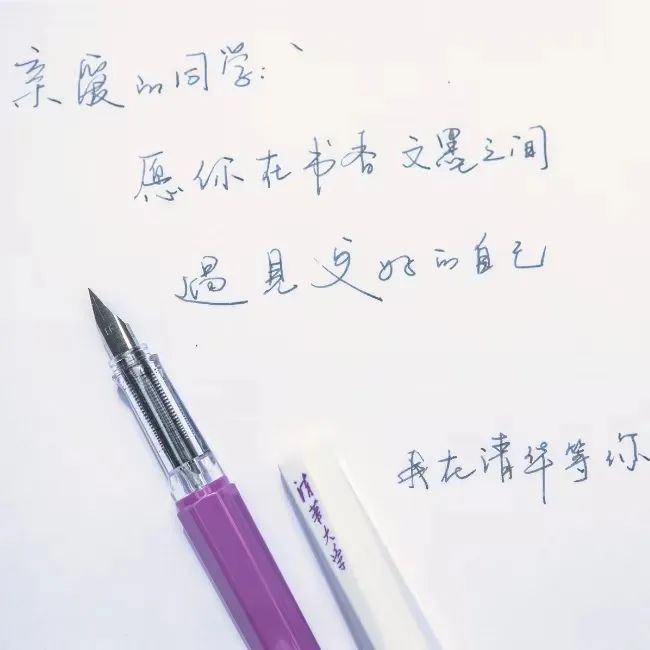 亲爱的同学：
愿你在书香文墨之间
遇见更好的自己
我在清华等你
清华大学